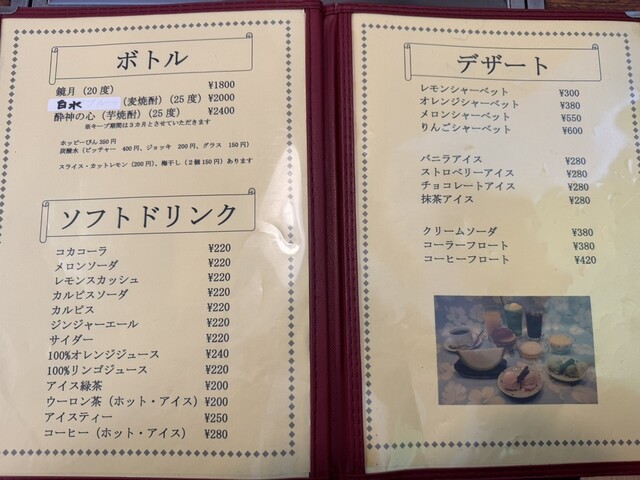 ボトル
鏡月（20度） ¥1800
白水 （麦焼酎）（25度） ¥2000
酔神の心（芋焼酎）（25度） ¥2400
※キープ期間は3カ月とさせていただきます
ホッピーびん 350円
炭酸水（ピッチャー 400円、ジョッキ 200円、グラス 150円）
スライス・カットレモン（200円）、梅干し（2個150円）あります
ソフトドリンク
コカコーラ ¥220
メロンソーダ ¥220
レモンスカッシュ ¥220
カルピスソーダ ¥220
カルピス ¥220
ジンジャーエール ¥220
サイダー ¥220
100%オレンジジュース ¥240
100%リンゴジュース ¥220
アイス緑茶 ¥200
ウーロン茶（ホット・アイス） ¥200
アイスティー ¥250
コーヒー（ホット・アイス） ¥280
デザート
レモンシャーベット ¥300
オレンジシャーベット ¥380
メロンシャーベット ¥550
りんごシャーベット ¥600
バニラアイス ¥280
ストロベリーアイス ¥280
チョコレートアイス ¥280
抹茶アイス ¥280
クリームソーダ ¥380
コーラーフロート ¥380
コーヒーフロート ¥420